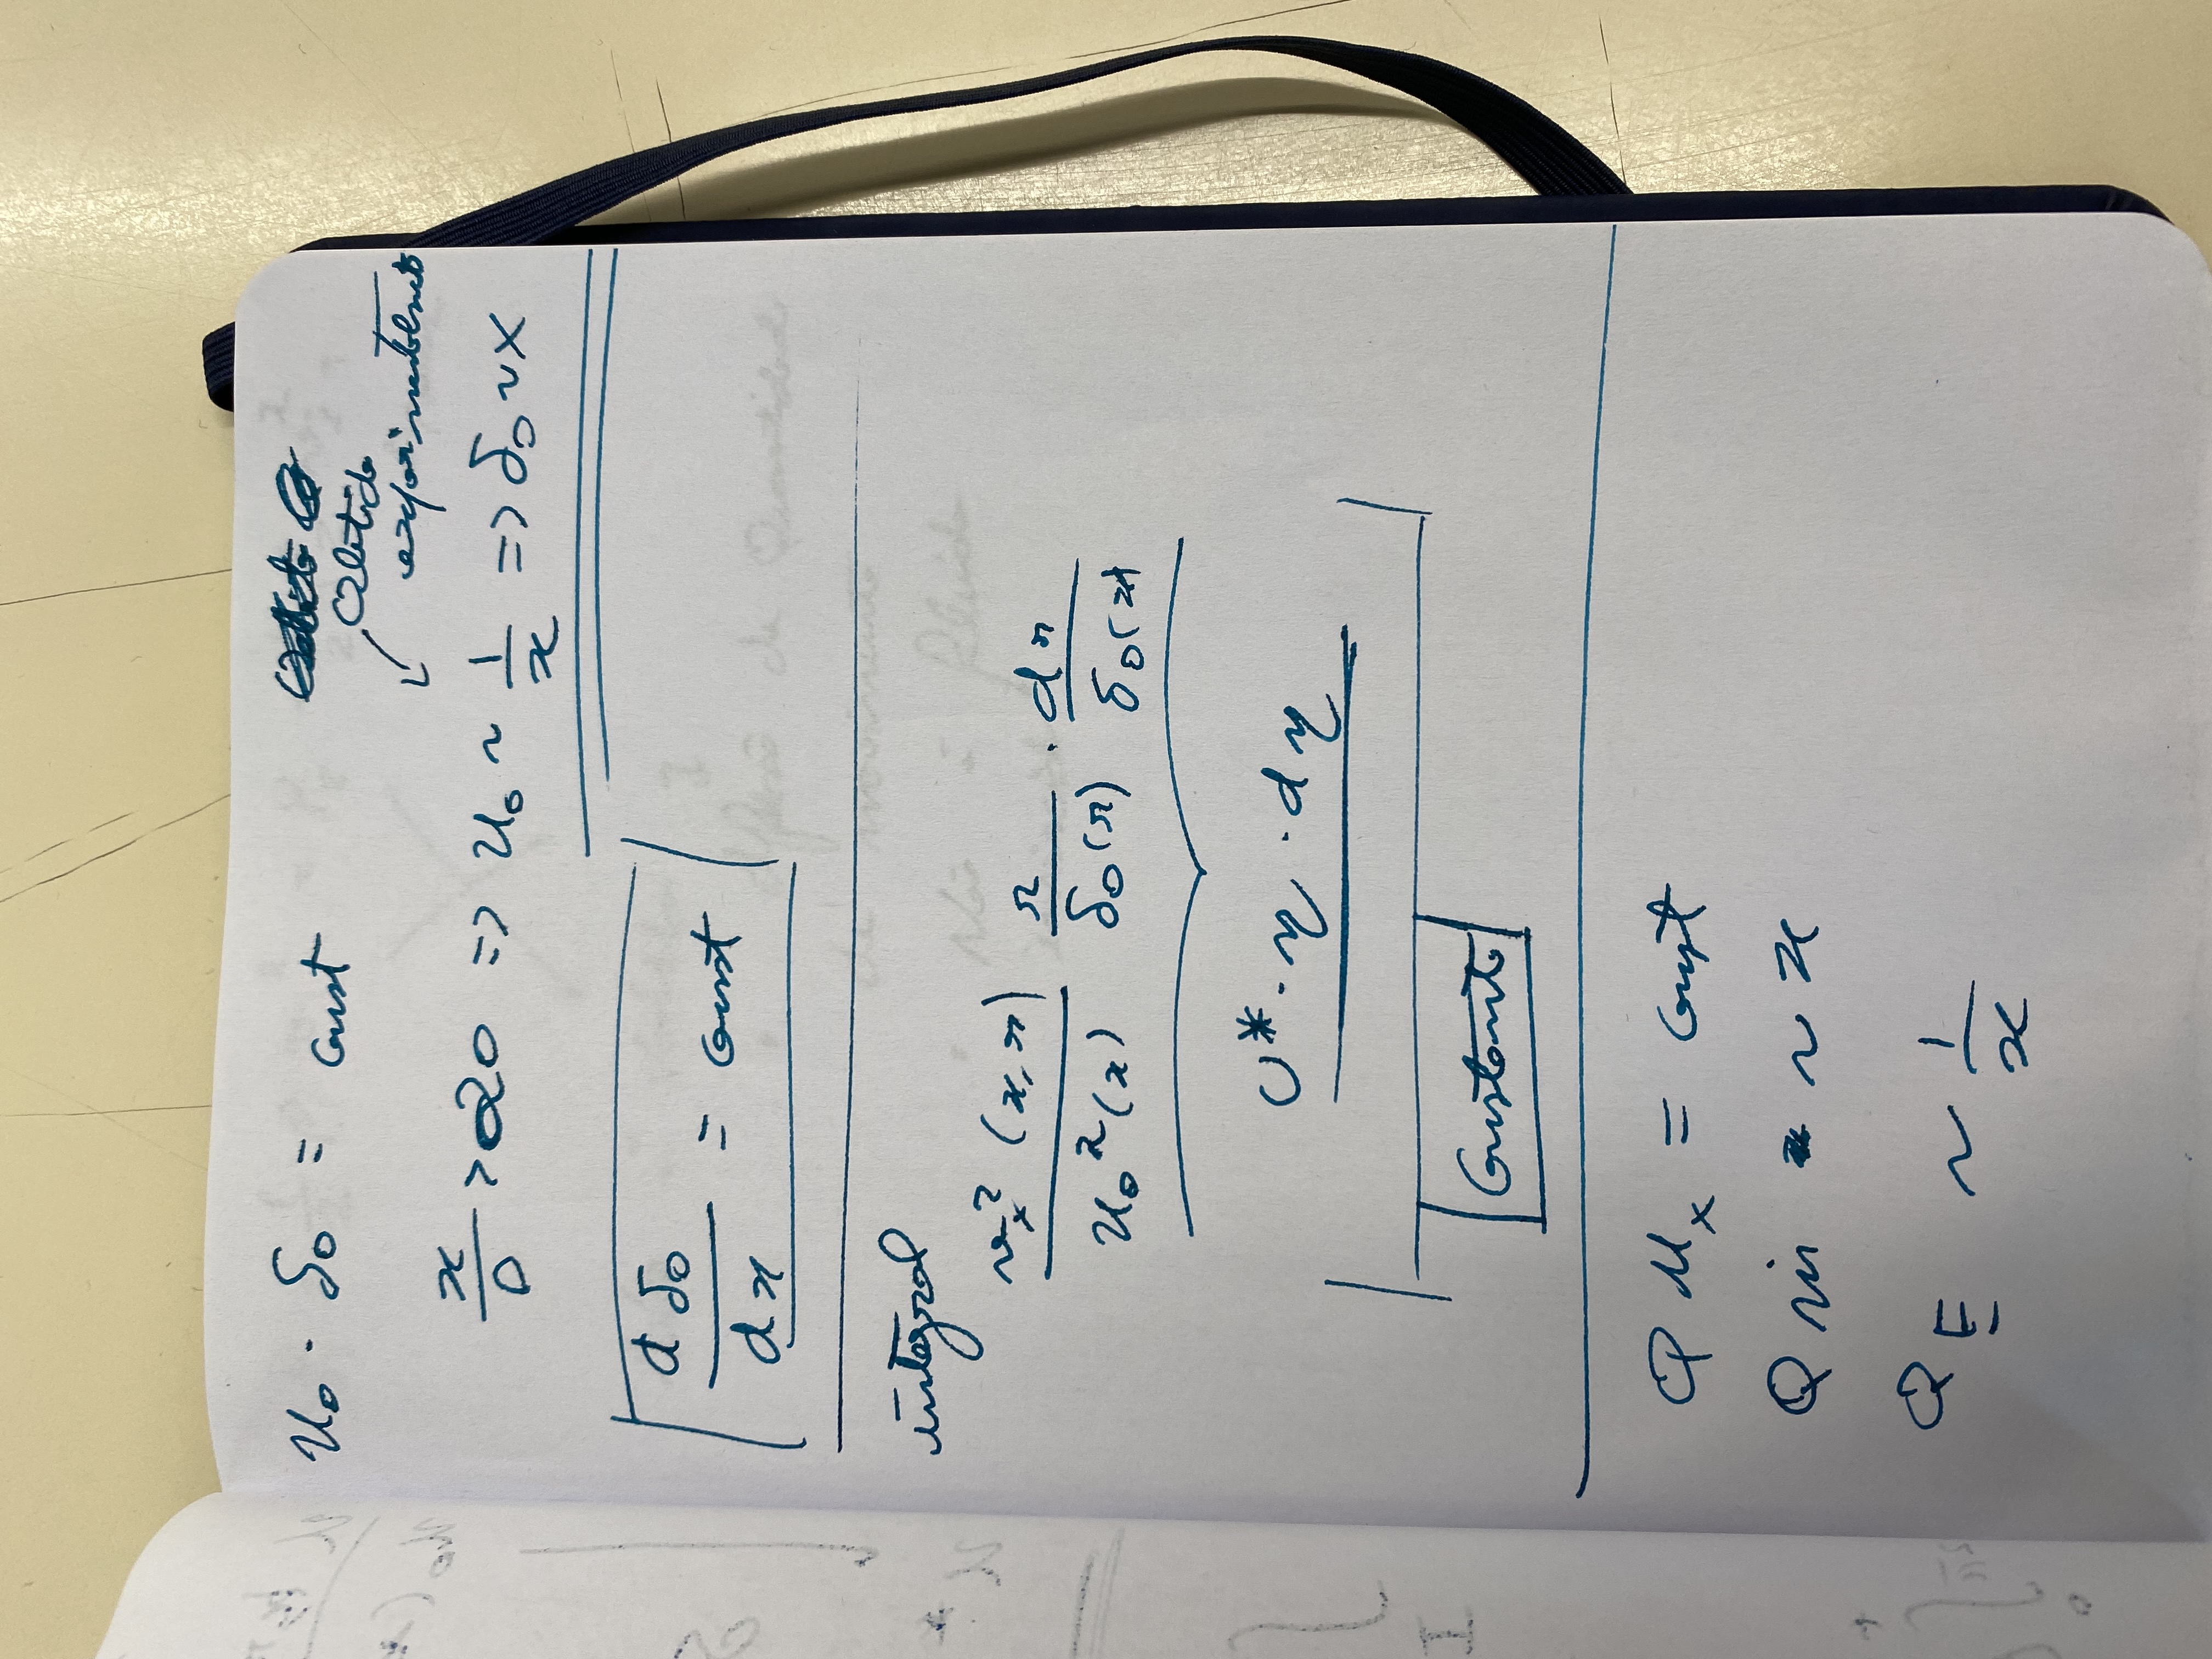 u₀ · δ₀ = const
Obtido
experimentalmente
x/D > 20 => u₀ ~ 1/x => δ₀ ~ x
dδ₀/dx = const
integral
vₓ²(x,r)/u₀²(x) r/δ₀(r) · dr/δ₀(x)
U* · η · dη
Constante
QMₓ = const
Qm ~ x
Q_E ~ 1/x